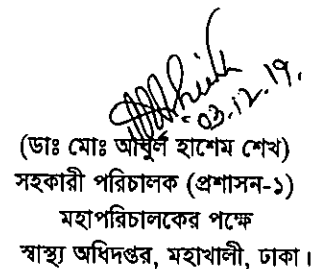 03.12.19.
(ডাঃ মোঃ আবুল হাশেম শেখ)
সহকারী পরিচালক (প্রশাসন-১)
মহাপরিচালকের পক্ষে
স্বাস্থ্য অধিদপ্তর, মহাখালী, ঢাকা।